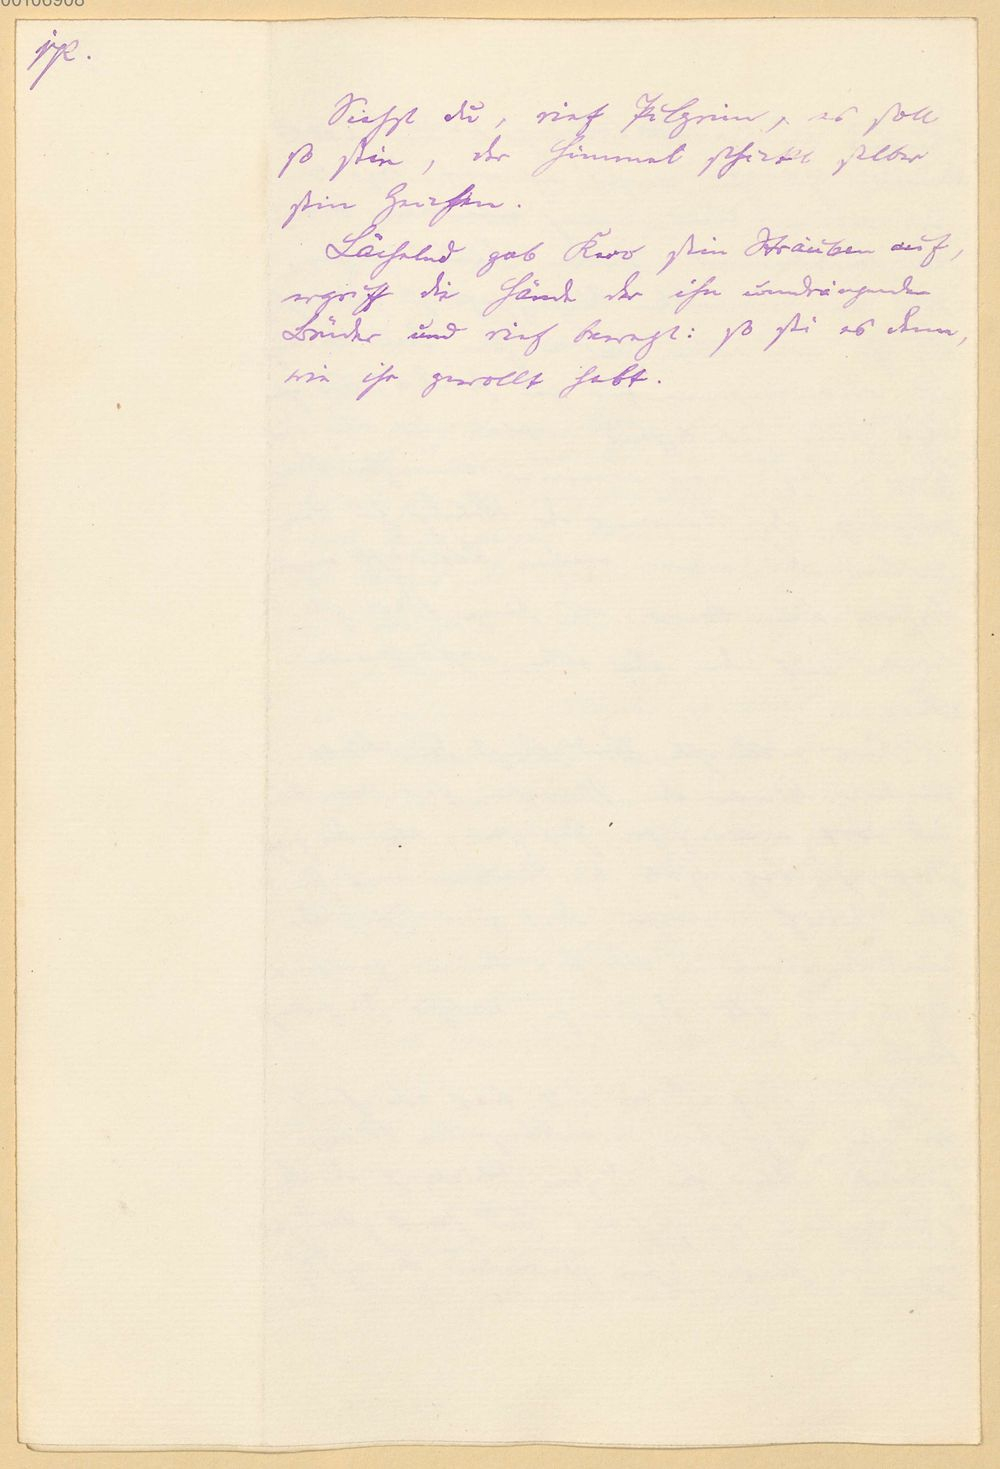 00106908
Siehst du, rief Pilgrim, es soll
so sein, der Himmel schickt selber
sein Zeichen.
Lächelnd gab Karo sein Sträuben auf,
ergriff die Hände der ihn umdrängenden
Brüder und rief bewegt: so sei es denn,
wie ihr gewollt habt.